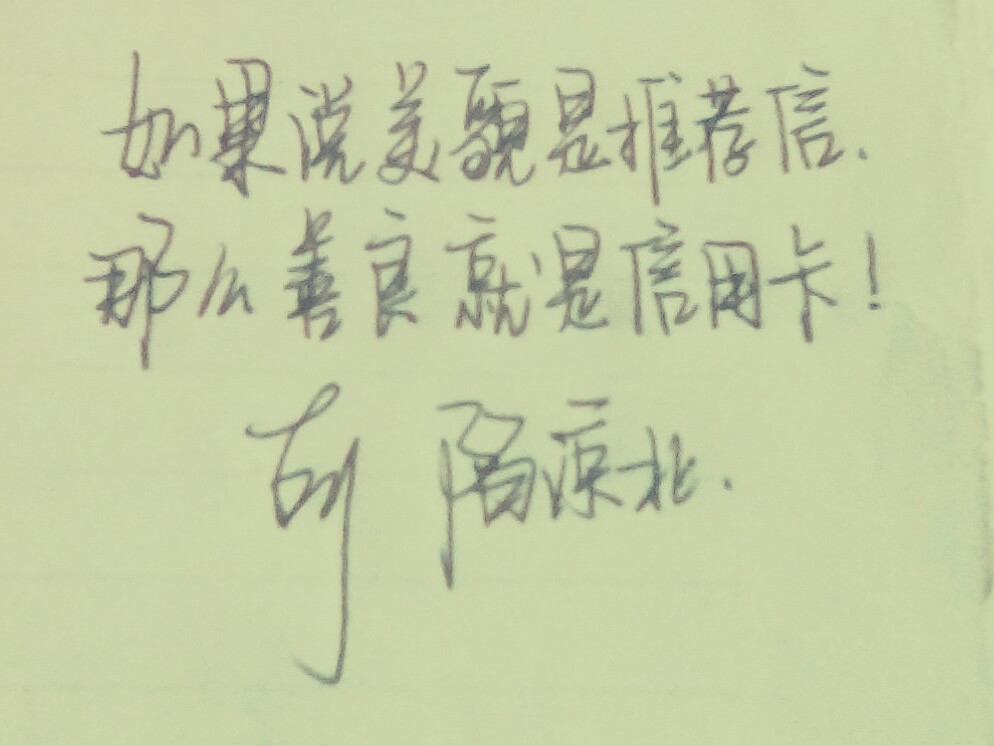 如果说美貌是推荐信.
那么善良就是信用卡!
陌凉北.